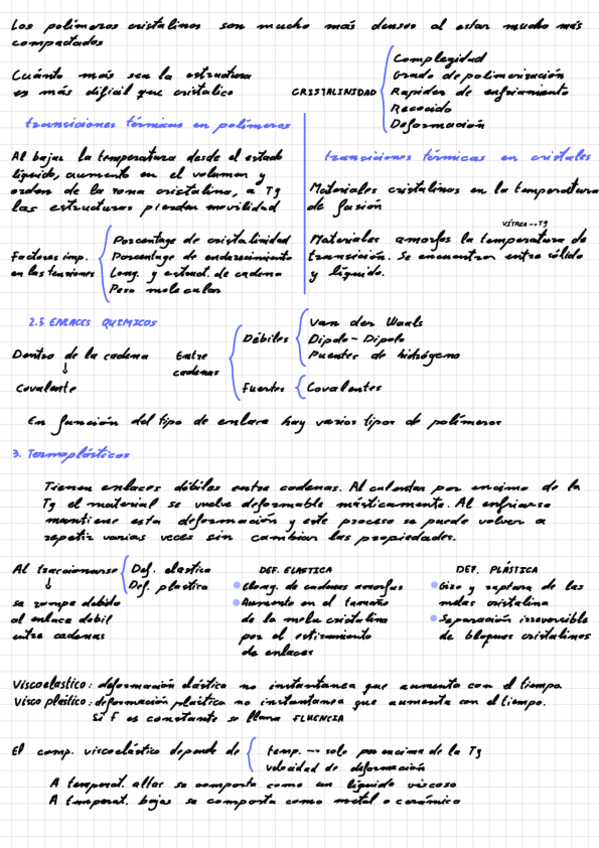 Los polímeros cristalinos son mucho más densos al estar mucho más
compactados
Cuánto más sea la estructura
es más difícil que cristalice
CRISTALINIDAD
Complejidad
Grado de polimerización
Rapidez de enfriamiento
Recocido
Deformación
transiciones térmicas en polímeros
Al bajar la temperatura desde el estado
líquido, aumento en el volumen y
orden de la zona cristalina, a Tg
las estructuras pierden movilidad
Factores imp.
en las tensiones
Porcentage de cristalinidad
Porcentage de endurecimiento
Long. y estruct. de cadena
Peso molecular
transiciones térmicas en cristales
Materiales cristalinos en la temperatura
de fusión
VÍTREA -- Tg
Materiales amorfos la temperatura de
transición. Se encuentran entre sólido
y líquido.
2.5 ENLACES QUIMICOS
Dentro de la cadena
↓
Covalente
Entre
cadenas
Débiles
Van der Waals
Dipolo - Dipolo
Puentes de hidrógeno
Fuertes
Covalentes
En función del tipo de enlace hay varios tipos de polímeros
3. Termoplásticos
Tienen enlaces débiles entre cadenas. Al calentar por encima de la
Tg el material se vuelve deformable plásticamente. Al enfriarse
mantiene esta deformación y este proceso se puede volver a
repetir varias veces sin cambiar las propiedades.
Al traccionarse
↓
se rompe debido
al enlace débil
entre cadenas
Def. elastica
Def. plastica
DEF. ELASTICA
Elong. de cadenas amorfas
Aumento en el tamaño
de la celda cristalina
por el estiramiento
de enlaces
DEF. PLÁSTICA
Giro y ruptura de las
celdas cristalina
Separación irreversible
de bloques cristalinos
Viscoelastico: deformación elástica no instantanea que aumenta con el tiempo.
Visco plastico: deformación plastica no instantanea que aumenta con el tiempo.
Si F es constante se llama FLUENCIA
El comp. viscoelástico depende de
temp. → solo por encima de la Tg
velocidad de deformación
A temperat. altas se comporta como un líquido viscoso
A temperat. bajas se comporta como metal o cerámico